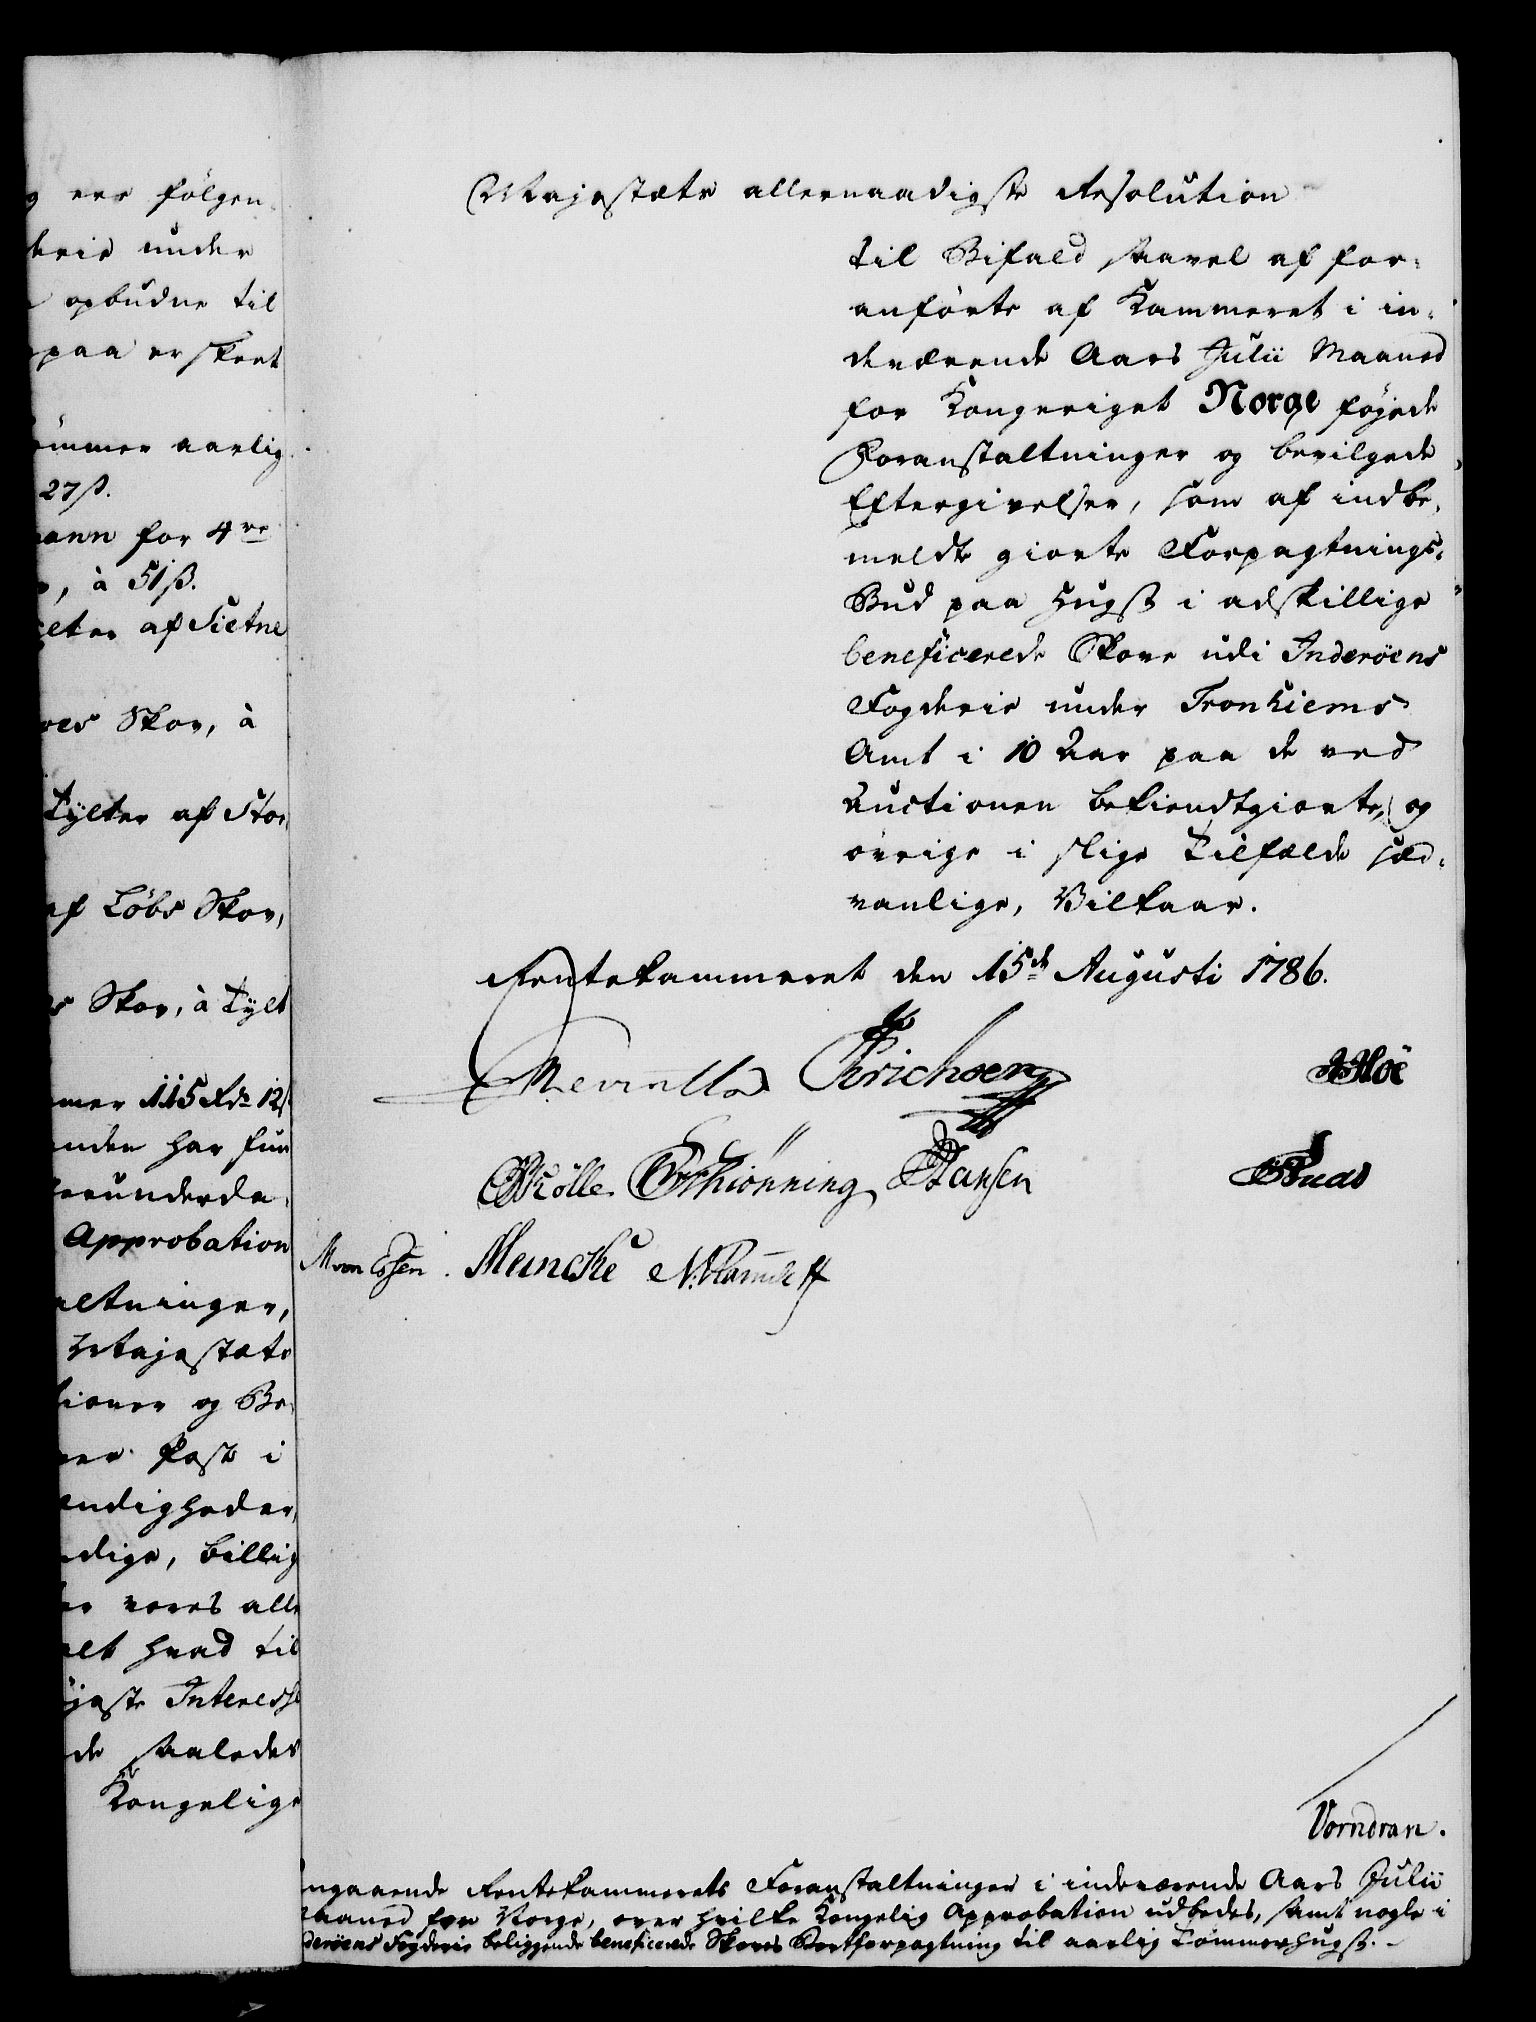 ere følgen-
under
opbudne til
paa er skeet
ømmer aarlig
27 ß.
mann for 4re
, à 51 ß.
ylter af Sietne
Skov, à
Tylter af Stor
af Løbs Skov,
Skov, à Tylt
115 Rdr 12 ß
anden har fun
herunderda-
Approbation
altninger,
Majestæts
tioner og Be-
Post i
ændigheder,
dige, billig
vores alle
alt hvad til
højeste Interesse
de saaledes
Kongelige
Majestæts allernaadigste Resolution
til Bifald saavel af for-
anførte af Kammeret i in-
deværende Aars Julii Maaned
for Kongeriget Norge føjede
Foranstaltninger og bevilgede
Eftergivelser, som af indbe-
meldte giorte Forpagtnings-
Bud paa Hugst i adskillige
beneficerede Skove udi Inderøens
Fogderie under Tronhiems
Amt i 10 Aar paa de ved
Auctionen bekiendtgiorte, og
øvrige i slige Tilfælde sæd-
vanlige, Vilkaar.
Rentekammeret den 15de Augusti 1786.
Erichsen
Schiönning Hansen
M von Essen. Meincke
Vorndran.
Angaaende Rentekammerets Foranstaltninger i indeværende Aars Julii
Maaned for Norge, over hvilke Kongelig Approbation udbedes, samt nogle i
Inderøens Fogderie beliggende beneficerede Skoves Bortforpagtning til aarlig Tømmerhugst.